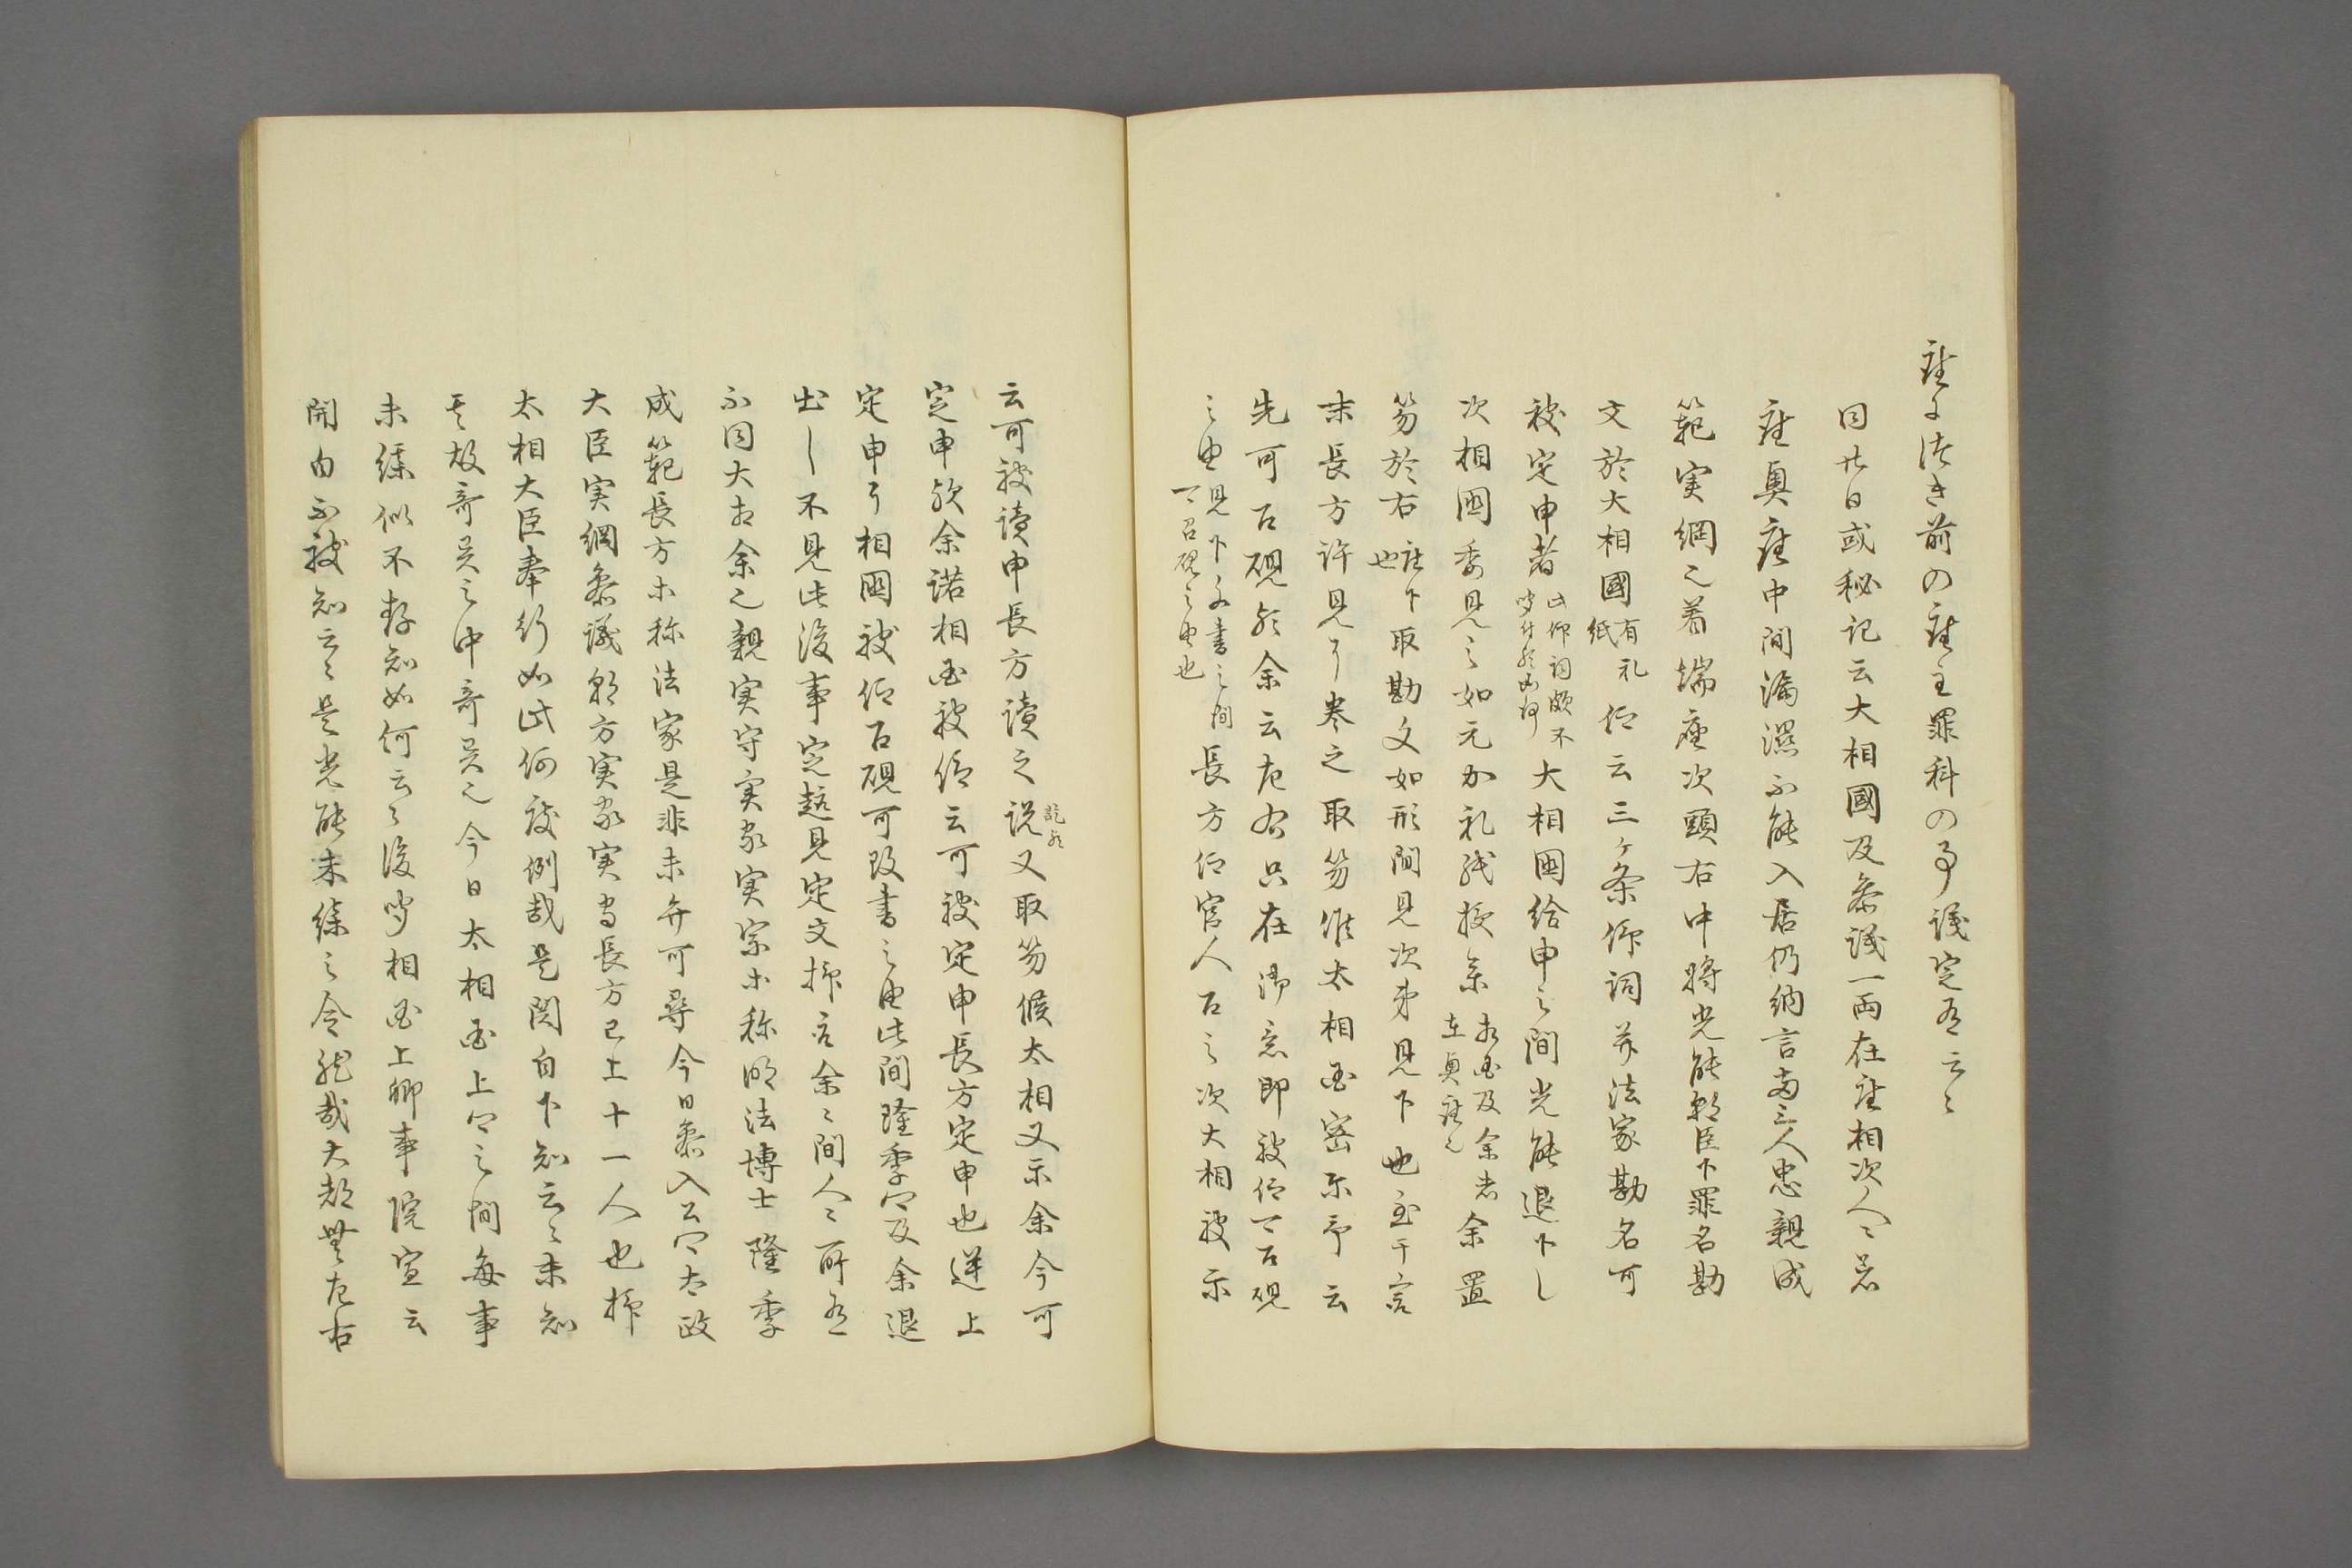 陣につき前の座主罪科の事議定有云々
同廿日或秘記云大相國及参議一両在座相次人々着
座奥座中間漏湿不能入居仍納言両三人忠親成
範実綱之着端座次頭右中将光能朝臣下罪名勘
文於大相國有礼紙仰云三ヶ条仰詞并法家勘名可
被定申者此仰詞頗不 大相國給申之間光能退下し
次相國委見之如元加礼紙授余相國及余者在奥座之余置
笏於右座下也取勘文如形間見次第見下也至于宰
末長方許見了巻之取笏候太相国密示予云
先可召硯歟余云左右只在御意即被仰可召硯
之由見下文書之間可召硯之由也長方仰官人召之次大相被示
云可被読申長方読之説又取笏候太相又示余今可
定申歟余諾相国被仰云可被定申長方定申也逆上
定申了相國被仰召硯可改書之由此間隆季卿及余退
出し不見此後事定趣見定文抑言余々間人々所存
不同大相余之親実守実家実宗等称明法博士隆季
成範長方等称法家是非未弁可尋今日参入公卿太政
大臣実綱参議朝方実家実守長方已上十一人也抑
太相大臣奉行如此何度例哉是関白下知云々未知
其故奇異之中奇異之今日太相国上卿之間毎事
未練似不存知如何云々後聞相国上卿事院宣云
関白不被知云々是光能未練之令然哉大都無左右